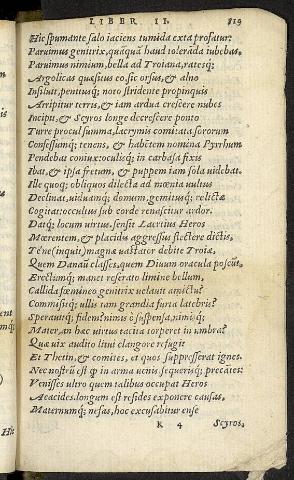 LIBER II. 819
Hic spumante salo iaciens tumida exta profatur:
Paruimus genitrix, quāquā haud tolerāda iubebas,
Paruimus nimium, bella ad Troiana, ratesq;
Argolicas quæsitus eo. sic orsus, & alno
Insiluit, pentiusq; noto stridente propinquis
Arripitur terris, & iam ardua crescere nubes
Incipit, & Scyros longe decrescere ponto
Turre procul summa, lacrymis comitata sororum
Confessumq; tenens, & habētem nomina Pyrrhum
Pendebat coniux: oculisq; in carbasa fixis
Ibat, & ipsa fretum, & puppem iam sola uidebat.
Ille quoq; obliquos dilecta ad mœnia uultus
Declinat, uiduamq; domum, gemitusq; relictæ
Cogitat: occultus sub corde renascitur ardor.
Datq; locum uirtus. sensit Laertius Heros
Mœrentem, & placidis aggressus flectere dictis,
Tēne (inquit) magnæ uastator debite Troiæ,
Quem Danaū classes, quem Diuum oracula poscūt,
Erectumq; manet reserato limine bellum,
Callida fœmineo genitrix uelauit amictu?
Commisitq; ullis tam grandia furta latebris?
Sperauitq; fidem? nimis ô suspensa, nimisq;
Mater, an hæc uirtus tacita torperet in umbra?
Quæ uix audito litui clangore refugit
Et Thetin, & comites, et quos suppresserat ignes.
Nec nostrū est ꝙ in arma uenis sequerisq; precātes:
Venisses ultro quem talibus occupat Heros
Aeacides. longum est resides exponere causas,
Maternumq; nefas, hoc excusabitur ense
K 4 Scyros,